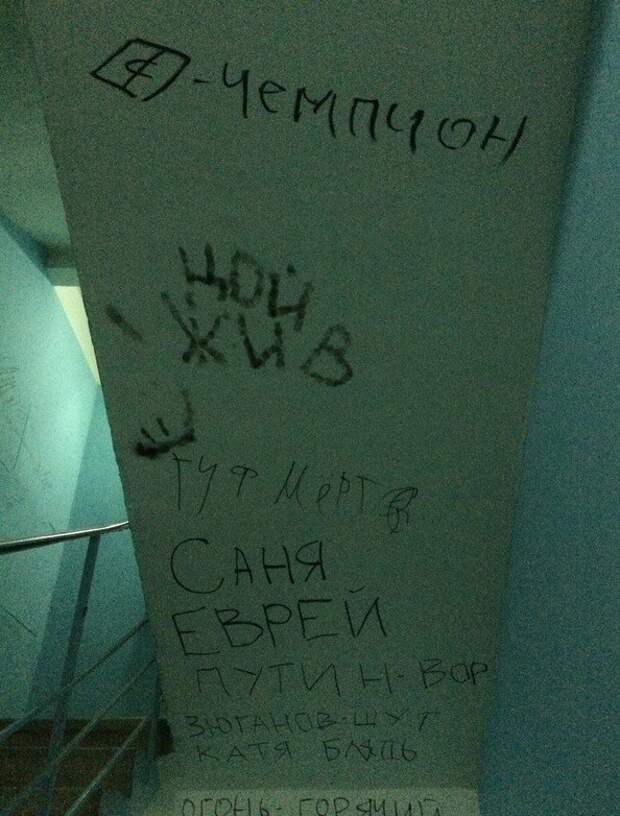 - чемпион
ЦОЙ
ЖИВ
ГУФ Мёртв
САНЯ
ЕВРЕЙ
ПУТИН - ВОР
ЗЮГАНОВ - ШУТ
КАТЯ БЛЯДЬ
ОГОНЬ - ГОРЯЧИЙ